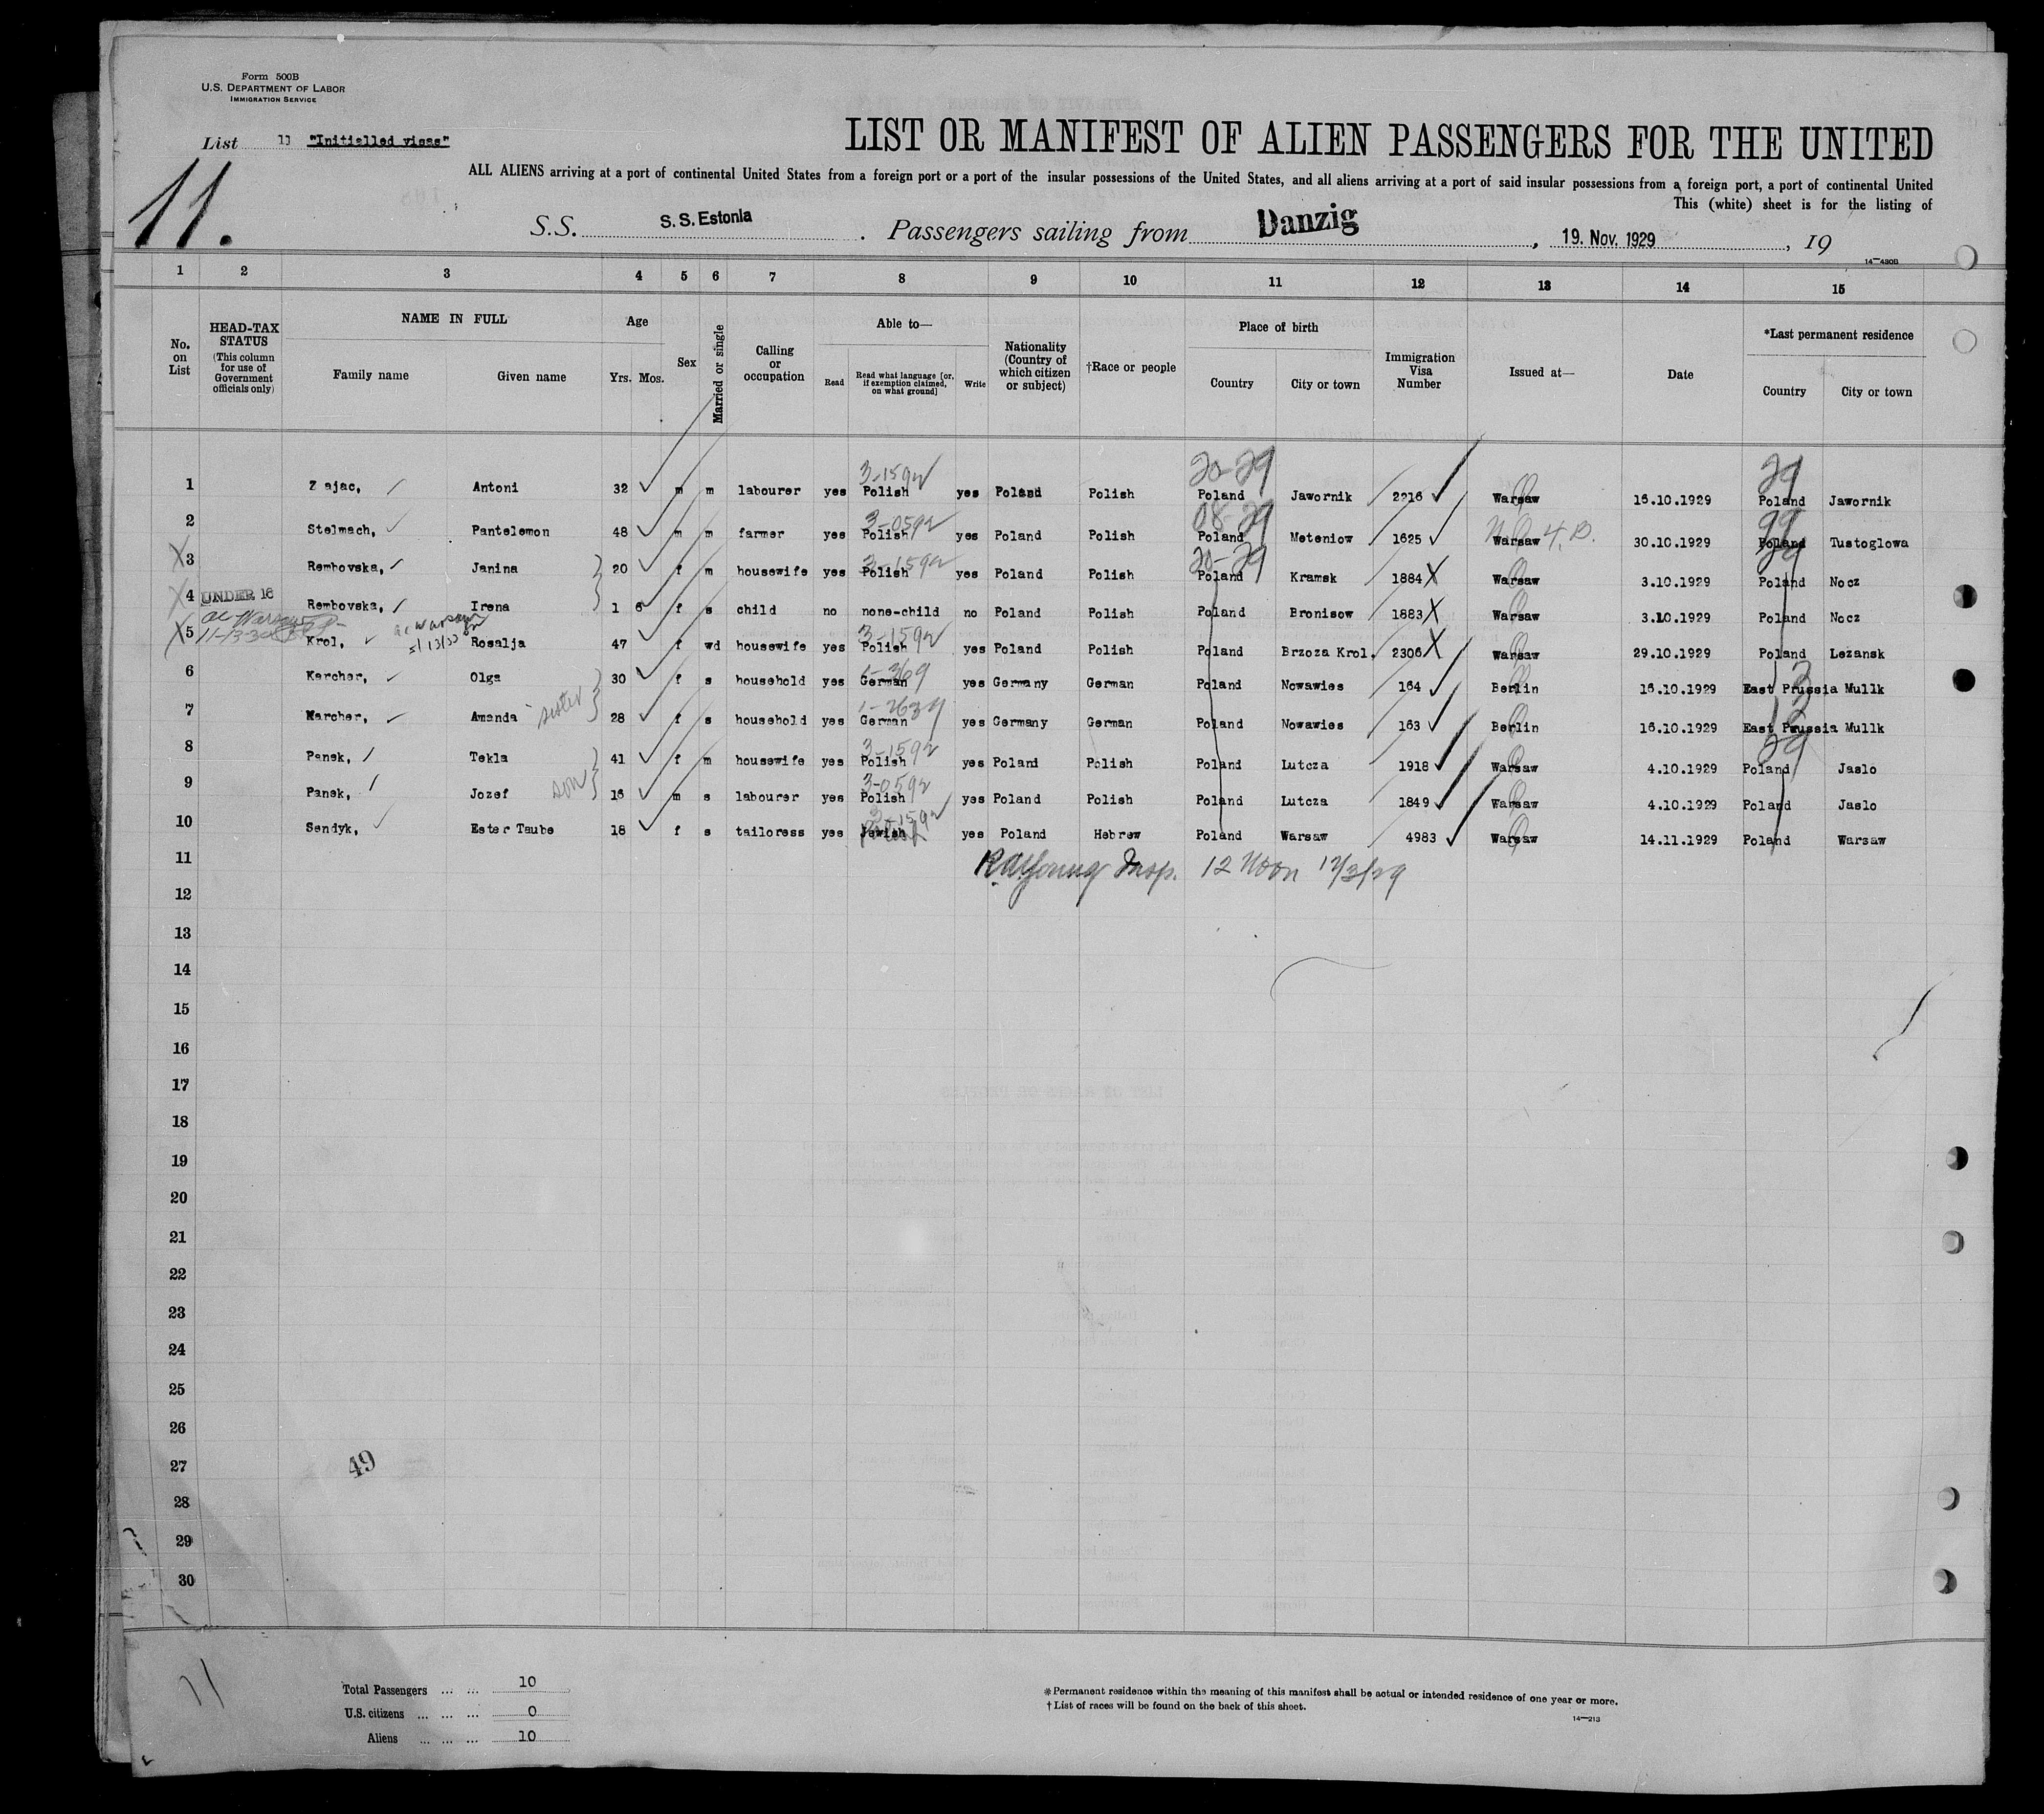 Form 500B
U.S. DEPARTMENT OF LABOR
IMMIGRATION SERVICE
List 11 "Initialled visas"
11.
LIST OR MANIFEST OF ALIEN PASSENGERS FOR THE UNITED
ALL ALIENS arriving at a port of continental United States from a foreign port or a port of the insular possessions of the United States, and all aliens arriving at a port of said insular possessions from a foreign port, a port of continental United
This (white) sheet is for the listing of
S.S. S.S. Estonia. Passengers sailing from Danzig, 19. Nov. 1929, 19
14—430B
1 2 3 4 5 6 7 8 9 10 11 12 13 14 15
No. on List HEAD-TAX STATUS (This column for use of Government officials only) NAME IN FULL Family name Given name Age Yrs. Mos. Sex Married or single Calling or occupation Able to— Read Read what language [or, if exemption claimed, on what ground] Write Nationality (Country of which citizen or subject) †Race or people Place of birth Country City or town Immigration Visa Number Issued at— Date *Last permanent residence Country City or town
3-1592 20-29 29
1 Zajac, Antoni 32 m m labourer yes Polish yes Poland Polish Poland Jawornik 2216 Warsaw 16.10.1929 Poland Jawornik
3-0592 08-29 99
2 Stelmach, Pantelemon 48 m m farmer yes Polish yes Poland Polish Poland Meteniow 1625 Warsaw 30.10.1929 Poland Tustoglowa
3-1592 20-29 29
X 3 Rembovska, Janina 20 f m housewife yes Polish yes Poland Polish Poland Kramsk 1884 X Warsaw 3.10.1929 Poland Nocz
X 4 UNDER 16 Rembovska, Irena 1 6 f s child no none-child no Poland Polish Poland Bronisow 1883 X Warsaw 3.10.1929 Poland Nocz
3-1592
X 5 Krol, Rosalja 47 f wd housewife yes Polish yes Poland Polish Poland Brzoza Krol. 2306 X Warsaw 29.10.1929 Poland Lezansk
6 Karcher, Olga 30 f s household yes German yes Germany German Poland Nowawies 164 Berlin 16.10.1929 East Prussia Mullk
sister
7 Karcher, Amanda 28 f s household yes German yes Germany German Poland Nowawies 163 Berlin 16.10.1929 East Prussia Mullk
3-1592 29
8 Panek, Tekla 41 f m housewife yes Polish yes Poland Polish Poland Lutcza 1918 Warsaw 4.10.1929 Poland Jaslo
3-0592
9 Panek, Jozef son 16 m s labourer yes Polish yes Poland Polish Poland Lutcza 1849 Warsaw 4.10.1929 Poland Jaslo
3-1592
10 Sendyk, Ester Taube 18 f s tailoress yes Jewish yes Poland Hebrew Poland Warsaw 4983 Warsaw 14.11.1929 Poland Warsaw
11 Insp. 12 Noon 12/3/29
12
13
14
15
16
17
18
19
20
21
22
23
24
25
26
27
49
28
29
30
11
Total Passengers ... ... 10
U.S. citizens ... ... ... 0
Aliens ... ... ... 10
*Permanent residence within the meaning of this manifest shall be actual or intended residence of one year or more.
†List of races will be found on the back of this sheet.
14—213